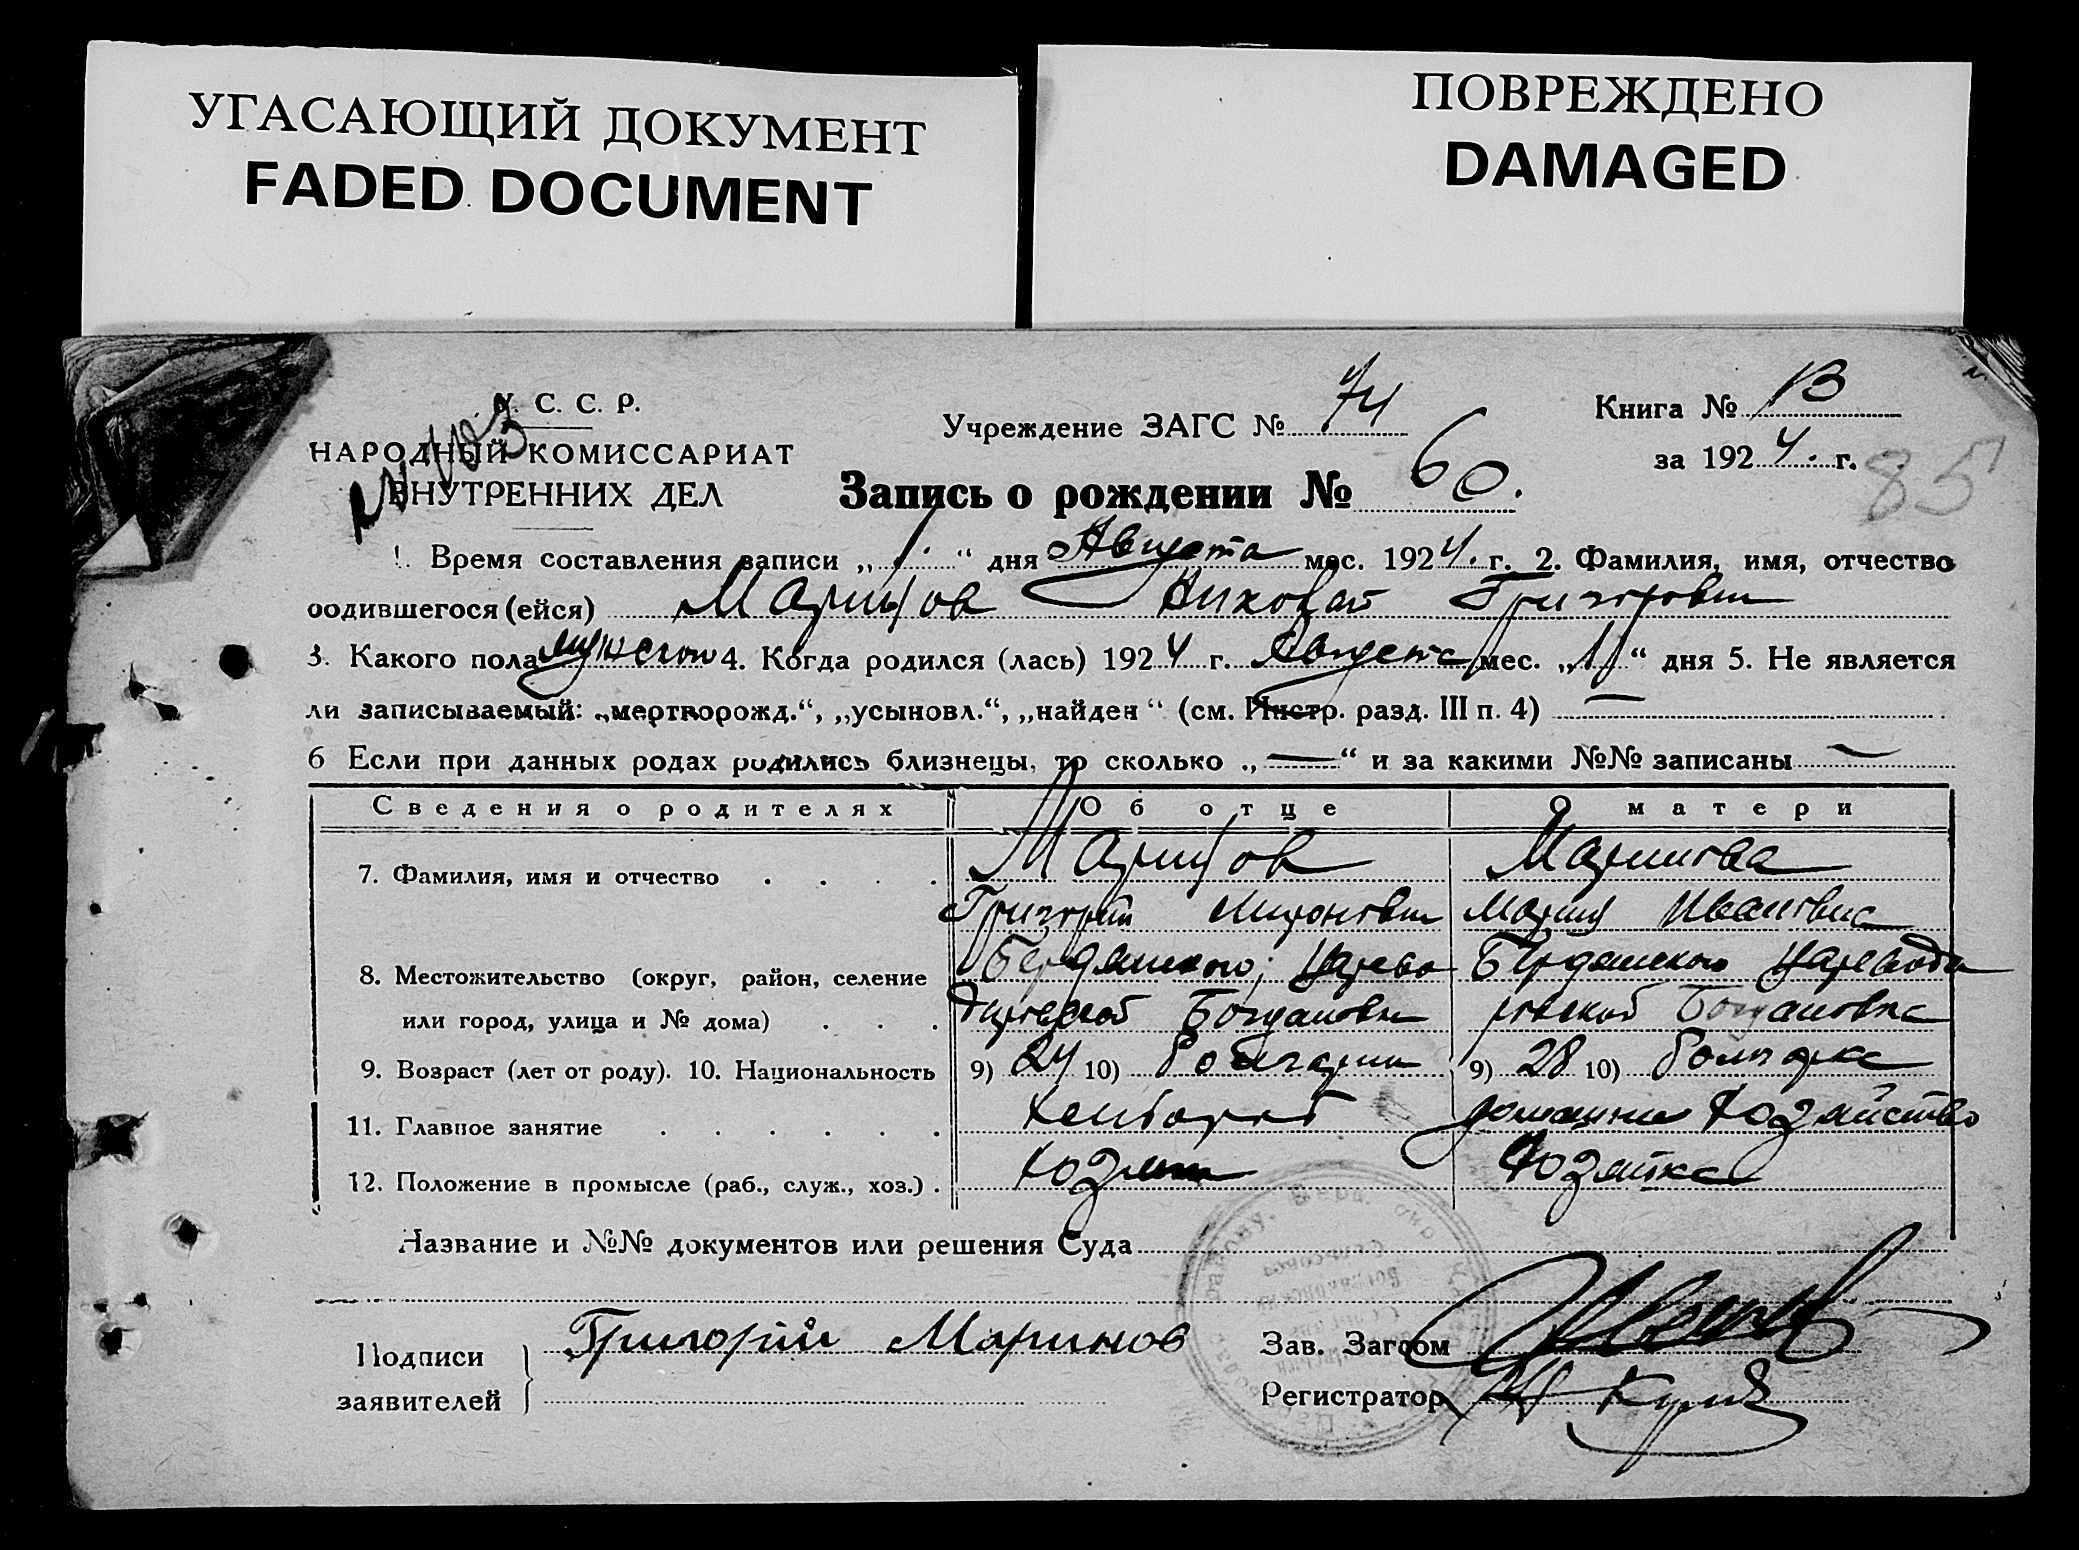 УГАСАЮЩИЙ ДОКУМЕНТ
FADED DOCUMENT
ПОВРЕЖДЕНО
DAMAGED
У. С. С. Р.
НАРОДНЫЙ КОМИССАРИАТ
ВНУТРЕННИХ ДЕЛ
Учреждение ЗАГС № 74
Книга № 13
за 1924. г.
85
Запись о рождении № 60.
1. Время составления записи „ 1. “ дня Августа мес. 1924. г. 2. Фамилия, имя, отчество
родившегося (ейся) Маринов Николай Григорович
3. Какого пола мужеского 4. Когда родился (лась) 1924 г. Августа мес. „ “ дня 5. Не является
ли записываемый: „мертворожд.“, „усыновл.“, „найден“ (см. Инстр. разд. III п. 4) —
6 Если при данных родах родились близнецы, то сколько „—“ и за какими №№ записаны —
Сведения о родителях Об отце О матери
7. Фамилия, имя и отчество Маринов Маринова
Григорий Миронович Мария Ивановна
8. Местожительство (округ, район, селение Бердянского, Царево Бердянского Царевода
или город, улица и № дома) Богдановка Богдановка
9. Возраст (лет от роду). 10. Национальность 9) 24 10) Болгарин 9) 28 10) Болгарка
11. Главное занятие хлебороб домашнее хозяйство
12. Положение в промысле (раб., служ., хоз.) хозяин хозяйка
Название и №№ документов или решения Суда
Подписи
заявителей
Григорий Маринов
Зав. Загсом
Регистратор